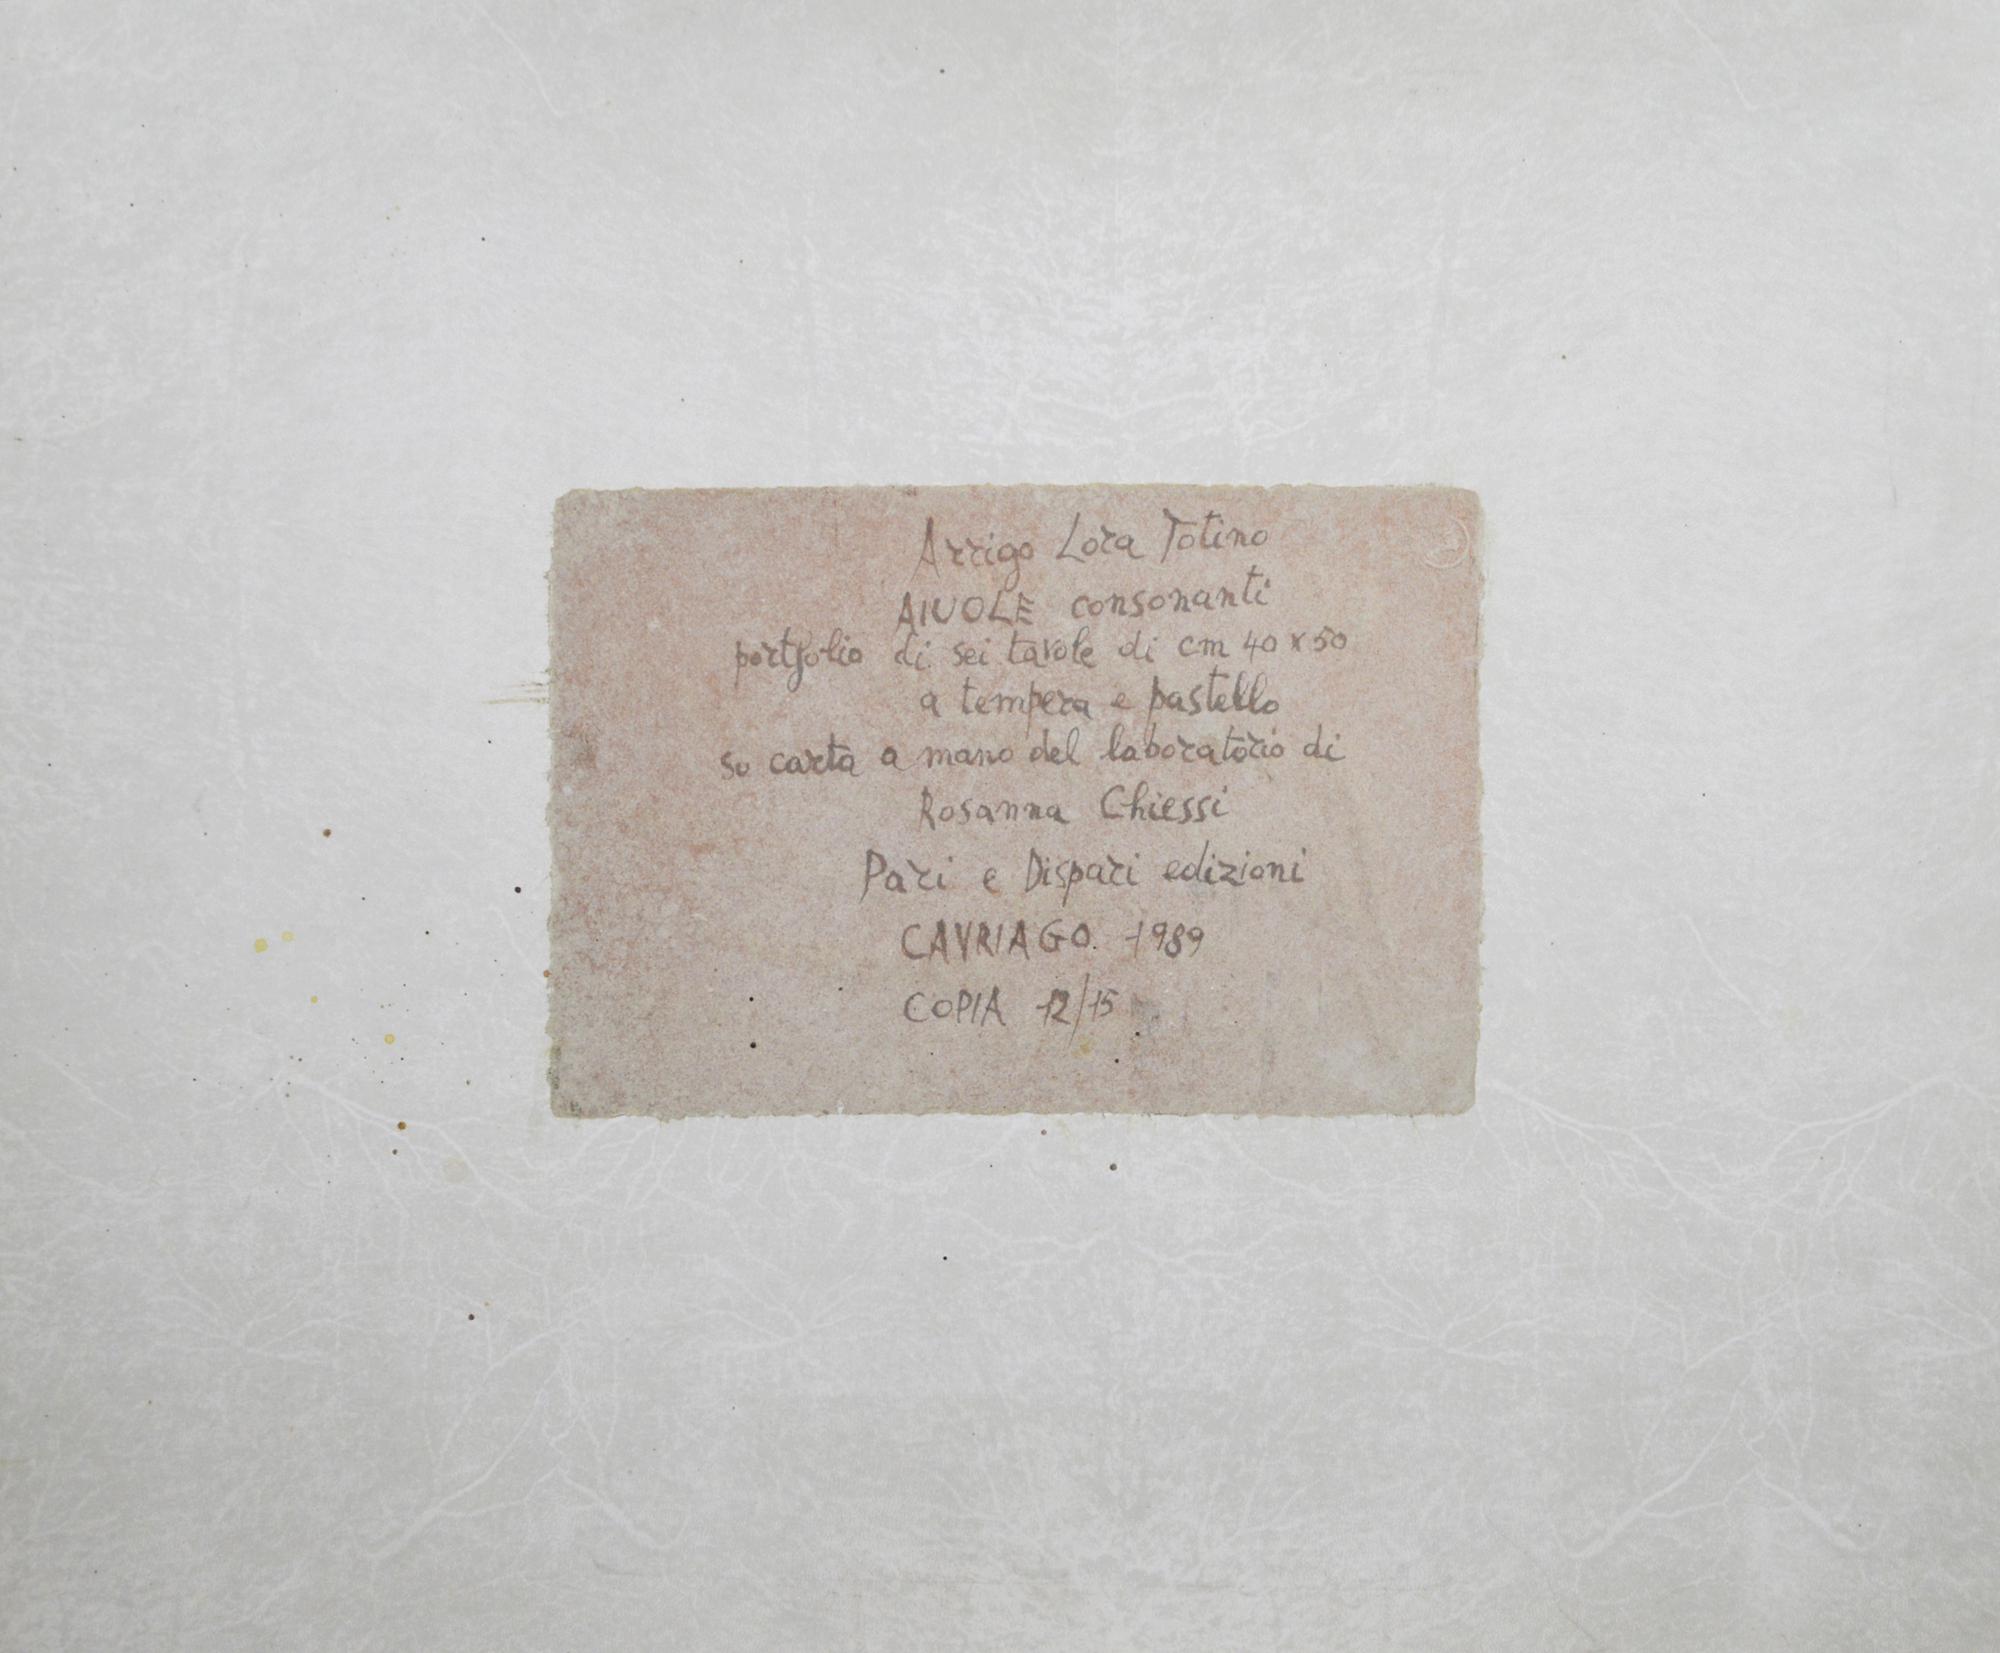 Arrigo Lora Totino
AIUOLE consonanti
portfolio di sei tavole di cm 40 x 50
a tempera e pastello
su carta a mano del laboratorio di
Rosanna Chiessi
Pari e Dispari edizioni
CAVRIAGO. 1989
COPIA 12/15